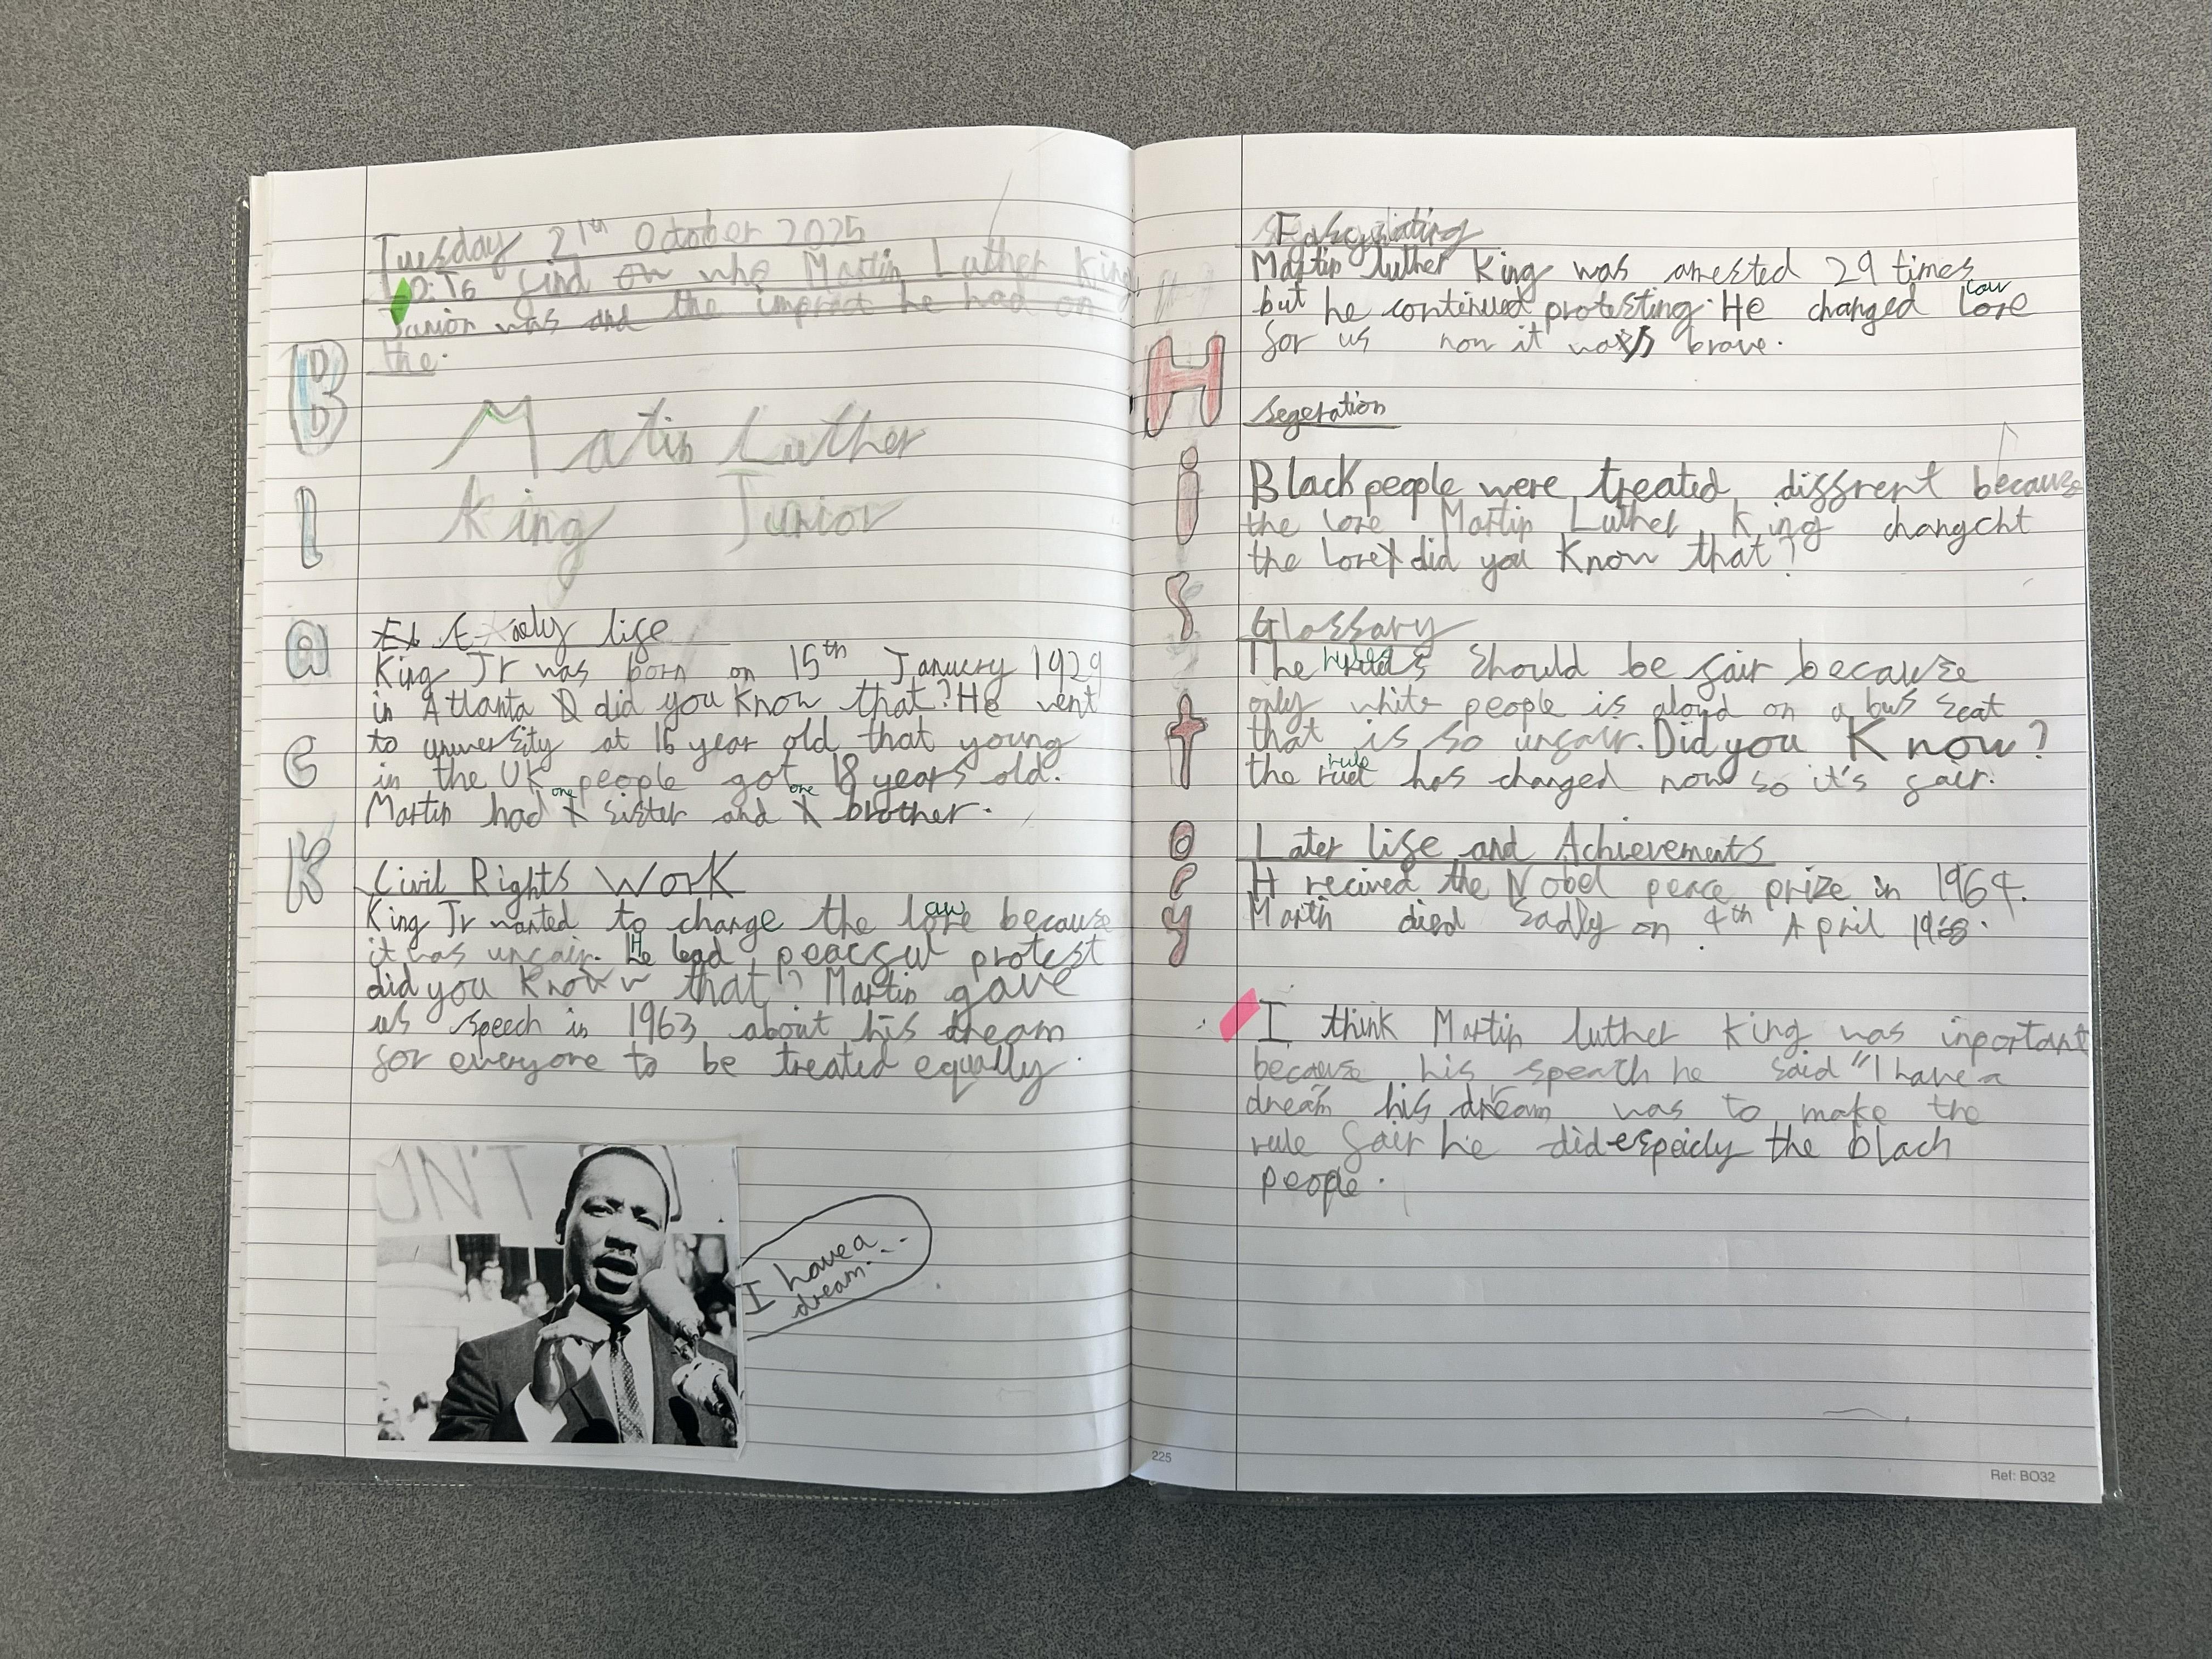 Tuesday 21th October 2025
L.O: To find ow who Martin Luther King
Junior was and the impact he had on
the.
Black
Matin Luther
king Junior
Early life
King Jr was born on 15th January 1929
in Atlanta did you know that? He went
to university at 16 year old that young
in the UK people got 18 years old.
one one
Martin had sister and brother.
Civil Rights Work
aw
King Jr wanted to change the lore because
it was unfair. He lead peacful protest
did you know that? Martin gave
us speech in 1963 about his dream
for everyone to be treated equally.
ON'T
I have a
dream...
History
Martin luther King was arrested 29 times
law
but he continued protesting. He changed lore
for us now it was brave.
Segeration
Black people were treated diffrent because
the lore Martin Luther King changcht
the lore did you know that?
Glossary
The rules should be fair because
only white people is aloud on a bus seat
that is so unfair. Did you Know?
rule
the ruel has changed now so it's fair.
Later life and Achievements
H recived the Nobel peace prize in 1964.
Martin died sadly on 4th April 1968.
I think Martin luther King was inportant
because his speath he said "I have a
dream his dream was to make the
rule fair he did espeicly the blach
people.
225
Ref: BO32